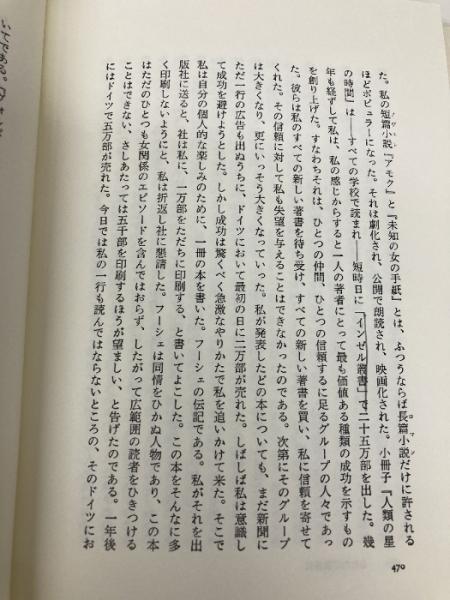 た。私の短篇小説『アモク』と『未知の女の手紙』とは、ふつうならば長篇小説だけに許される
ほどポピュラーになった。それは劇化され、公開で朗読され、映画化された。小冊子『人類の星
の時間』は――すべての学校で読まれ――短時日に「インゼル叢書」で二十五万部を出した。幾
年も経ずして私は、私の感じからすると一人の著者にとって最も価値ある種類の成功を示すもの
を創り上げた。すなわちそれは、ひとつの仲間、ひとつの信頼するに足るグループの人々であっ
た。彼らは私のすべての新しい著書を待ち受け、すべての新しい著書を買い、私に信頼を寄せて
くれた。その信頼に対して私も失望を与えることはできなかったのである。次第にそのグループ
は大きくなり、更にいっそう大きくなっていった。私が発表したどの本についても、まだ新聞に
ただ一行の広告も出ぬうちに、ドイツにおいて最初の日に二万部が売れた。しばしば私は意識し
て成功を避けようとした。しかし成功は驚くべく急激なやりかたで私を追いかけて来た。そこで
私は自分の個人的な楽しみのために、一冊の本を書いた。フーシェの伝記である。私がそれを出
版社に送ると、社は私に、一万部をただちに印刷する、と書いてよこした。この本をそんなに多
く印刷しないようにと、私は折返し社に懇請した。フーシェは同情をひかぬ人物であり、この本
はただのひとつも女関係のエピソードを含んではおらず、したがって広範囲の読者をひきつける
ことはできない、さしあたっては五千部を印刷するほうが望ましい、と告げたのである。一年後
にはドイツで五万部が売れた。今日では私の一行も読んではならないところの、そのドイツにお
470